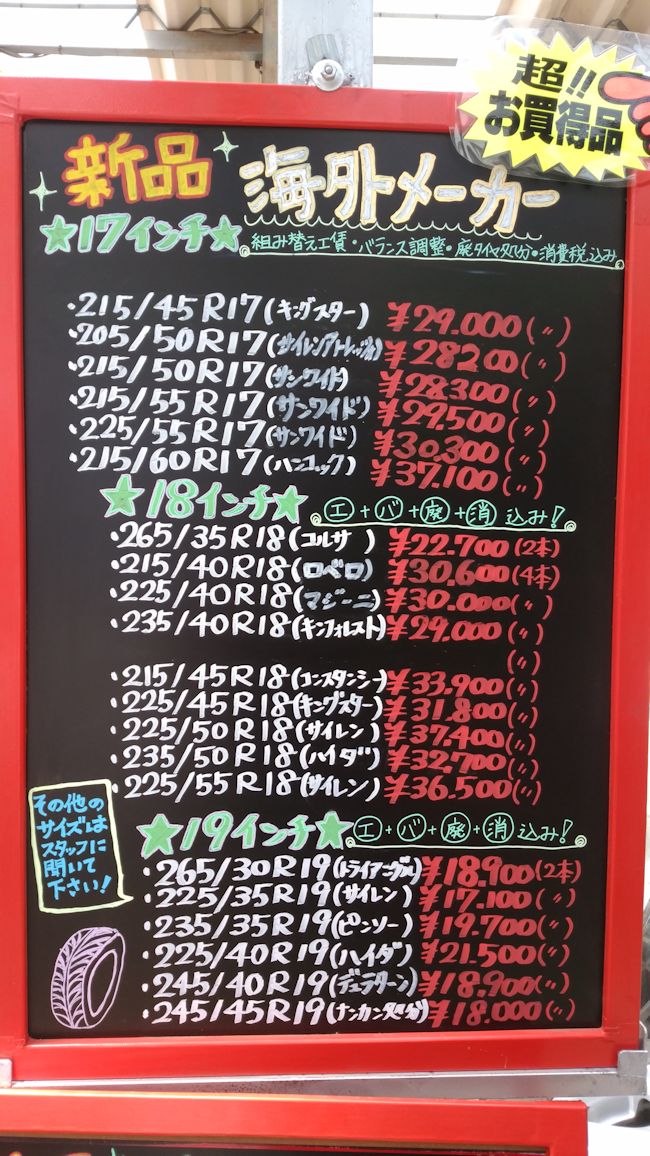 超!!
お買得品
新品 海外メーカー
★17インチ★
組み替え工賃・バランス調整・廃タイヤ処分・消費税込み
・215/45R17(キングスター) ¥29.000(〃)
・205/50R17(サイレンアトレッツォ) ¥28200(〃)
・215/50R17(サンワイド) ¥28300(〃)
・215/55R17(サンワイド) ¥29.500(〃)
・225/55R17(サンワイド) ¥30.300(〃)
・215/60R17(ハンコック) ¥37.100(〃)
★18インチ★ エ+バ+廃+消 込み!
・265/35R18(コルサ) ¥22.700(2本)
・215/40R18(ロベロ) ¥30.600(4本)
・225/40R18(マジーニ) ¥30.000(〃)
・235/40R18(キンフォレスト) ¥29.000(〃)
(〃)
・215/45R18(コンスタンシー) ¥33.900(〃)
・225/45R18(キングスター) ¥31.800(〃)
・225/50R18(サイレン) ¥37.400(〃)
・235/50R18(ハイダ) ¥32.700(〃)
・225/55R18(サイレン) ¥36.500(〃)
その他の
サイズは
スタッフに
聞いて
下さい!
★19インチ★ エ+バ+廃+消 込み!
・265/30R19(トライアングル) ¥18.900(2本)
・225/35R19(サイレン) ¥17.100(〃)
・235/35R19(ピンソー) ¥19.700(〃)
・225/40R19(ハイダ) ¥21.500(〃)
・245/40R19(デュラターン) ¥18.900(〃)
・245/45R19(ナンカン処分) ¥18.000(〃)